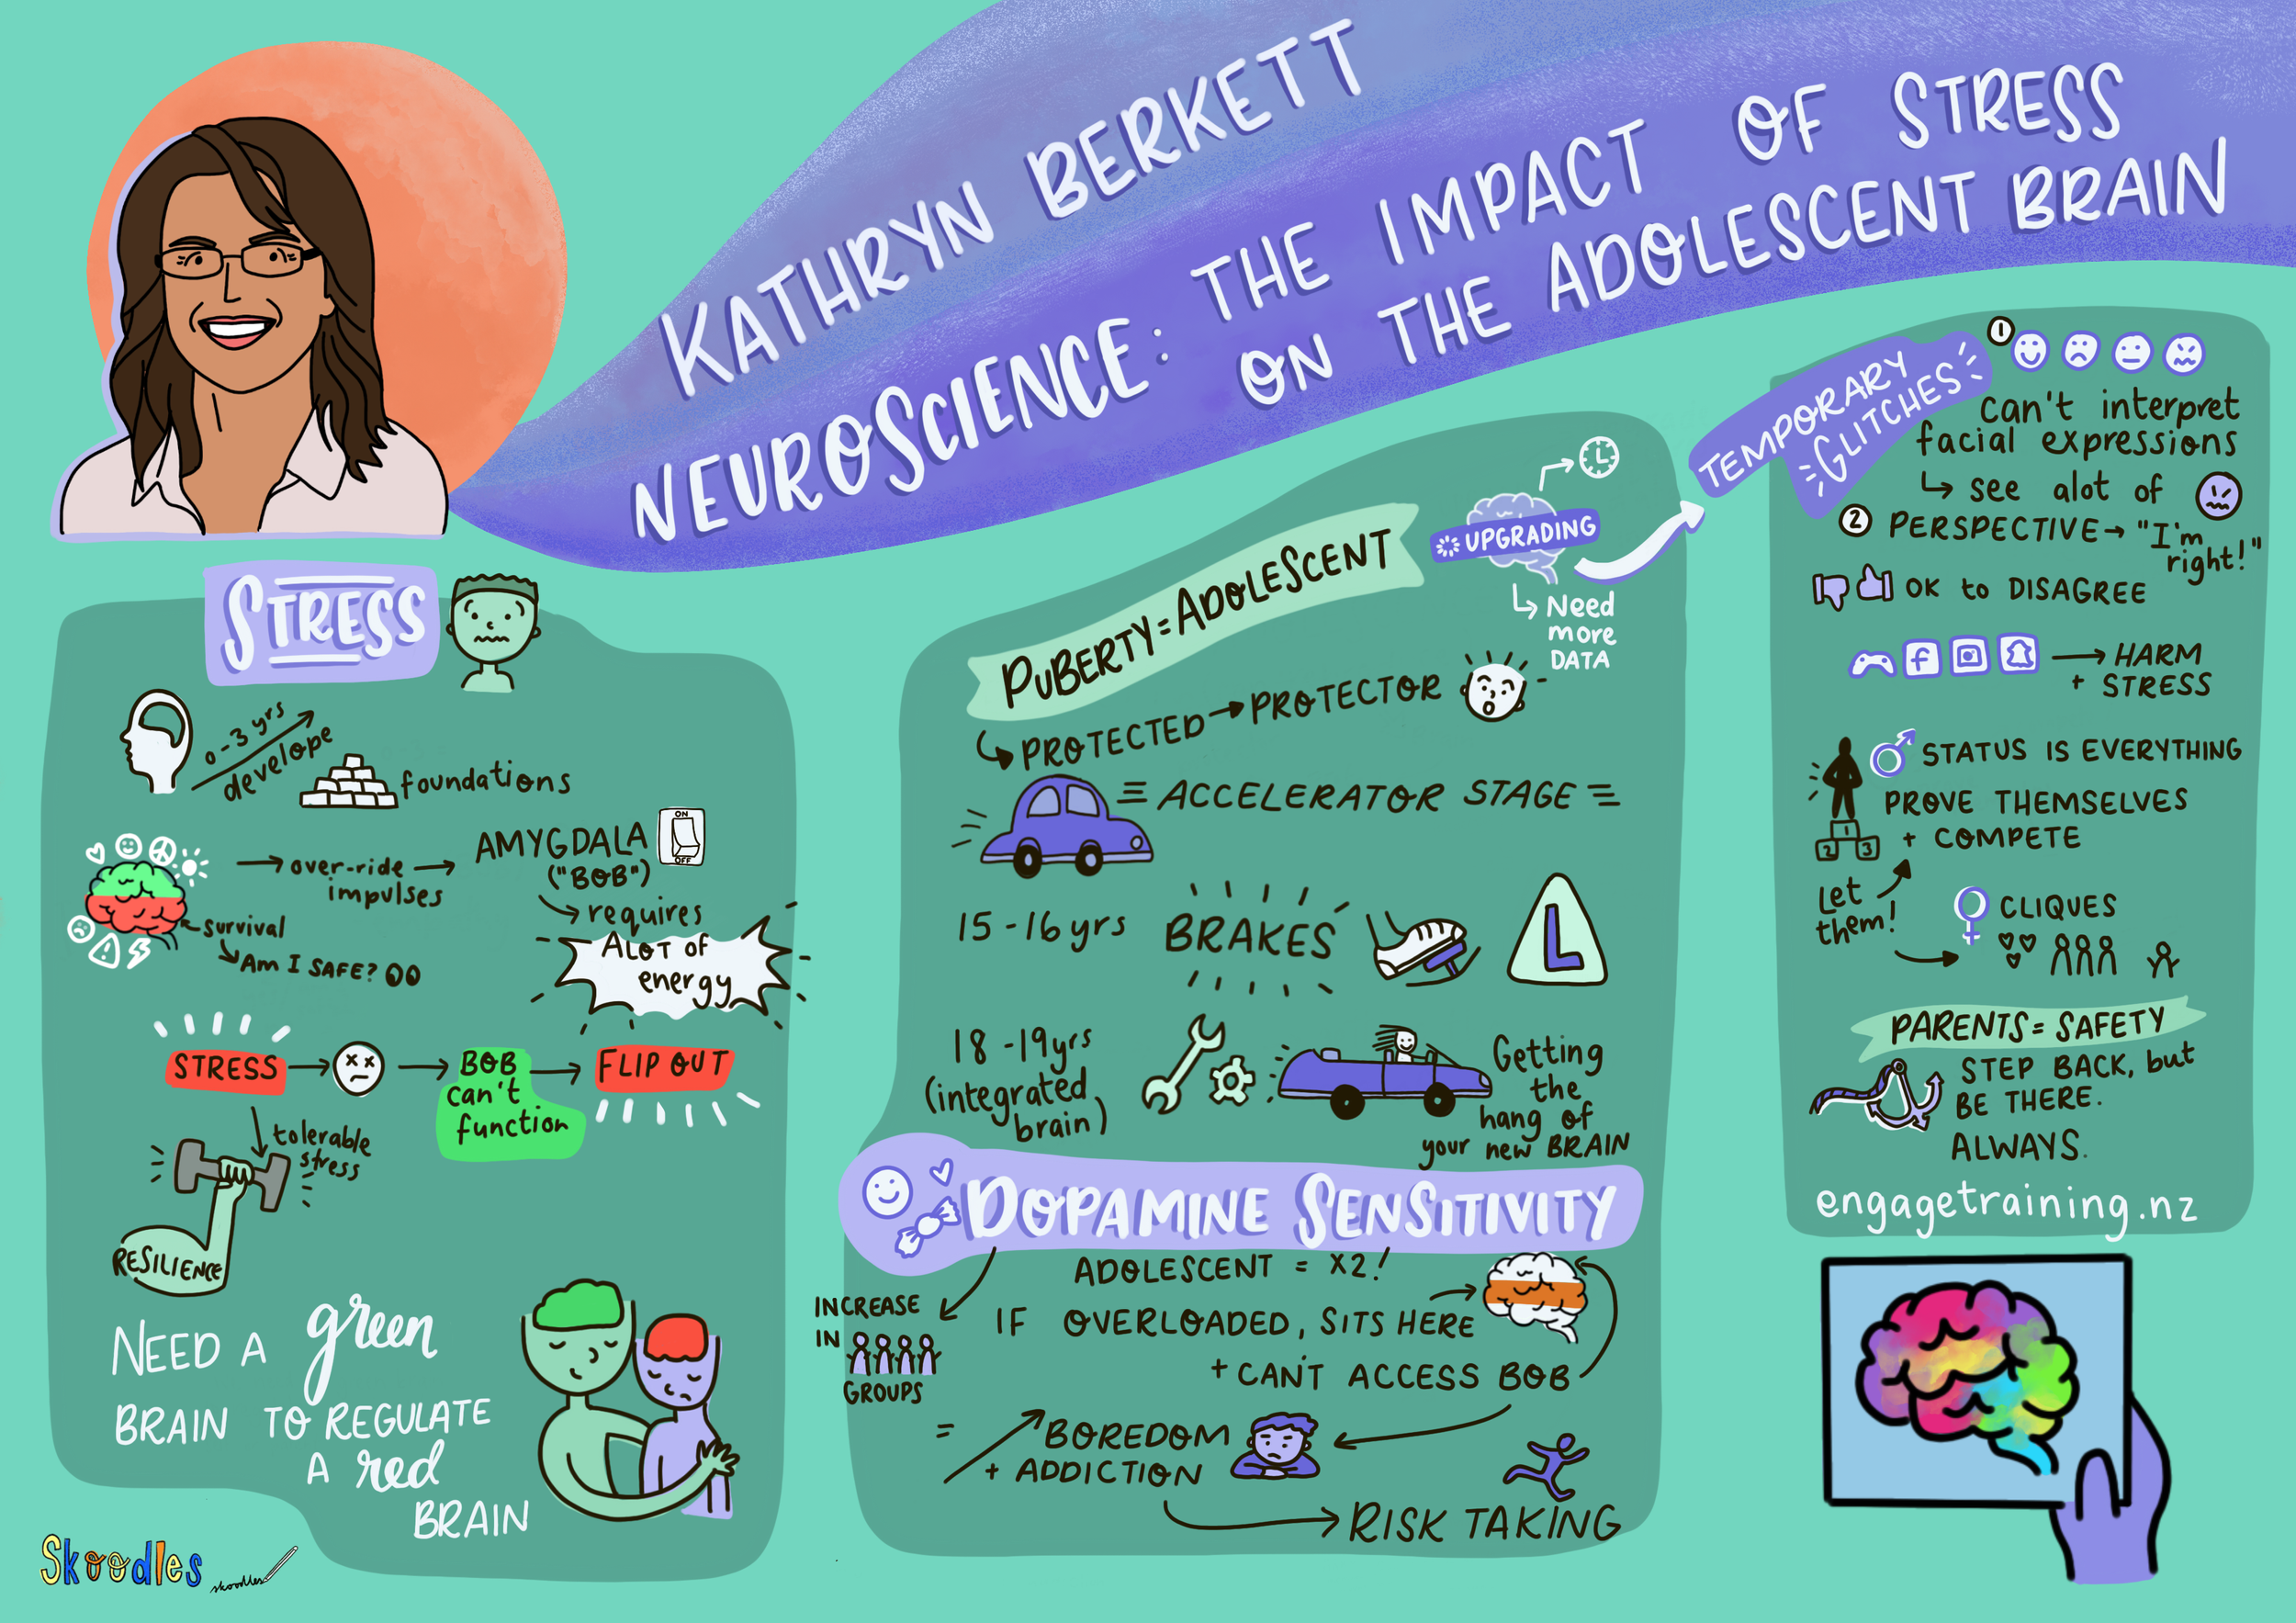 KATHRYN BERKETT
NEUROSCIENCE: THE IMPACT OF STRESS
ON THE ADOLESCENT BRAIN
STRESS
0-3 yrs
develope
foundations
over-ride
impulses
AMYGDALA
("BOB")
ON
OFF
survival
Am I SAFE?
requires
ALOT OF
energy
STRESS
BOB
can't
function
FLIP OUT
tolerable
stress
RESILIENCE
NEED A green
BRAIN TO REGULATE
A red
BRAIN
Skoodles
skoodles
PUBERTY = ADOLESCENT
UPGRADING
Need
more
DATA
PROTECTED → PROTECTOR
ACCELERATOR STAGE
15-16 yrs
BRAKES
L
18-19yrs
(integrated
brain)
Getting
the
hang of
your new BRAIN
DOPAMINE SENSITIVITY
ADOLESCENT = X2!
INCREASE
IN
GROUPS
IF OVERLOADED, SITS HERE
+ CAN'T ACCESS BOB
= BOREDOM
+ ADDICTION
RISK TAKING
TEMPORARY
GLITCHES
1
can't interpret
facial expressions
see alot of
2 PERSPECTIVE → "I'm
right!"
OK to DISAGREE
f
HARM
+ STRESS
STATUS IS EVERYTHING
PROVE THEMSELVES
+ COMPETE
1
2 3
Let
them!
CLIQUES
PARENTS = SAFETY
STEP BACK, but
BE THERE.
ALWAYS.
engagetraining.nz